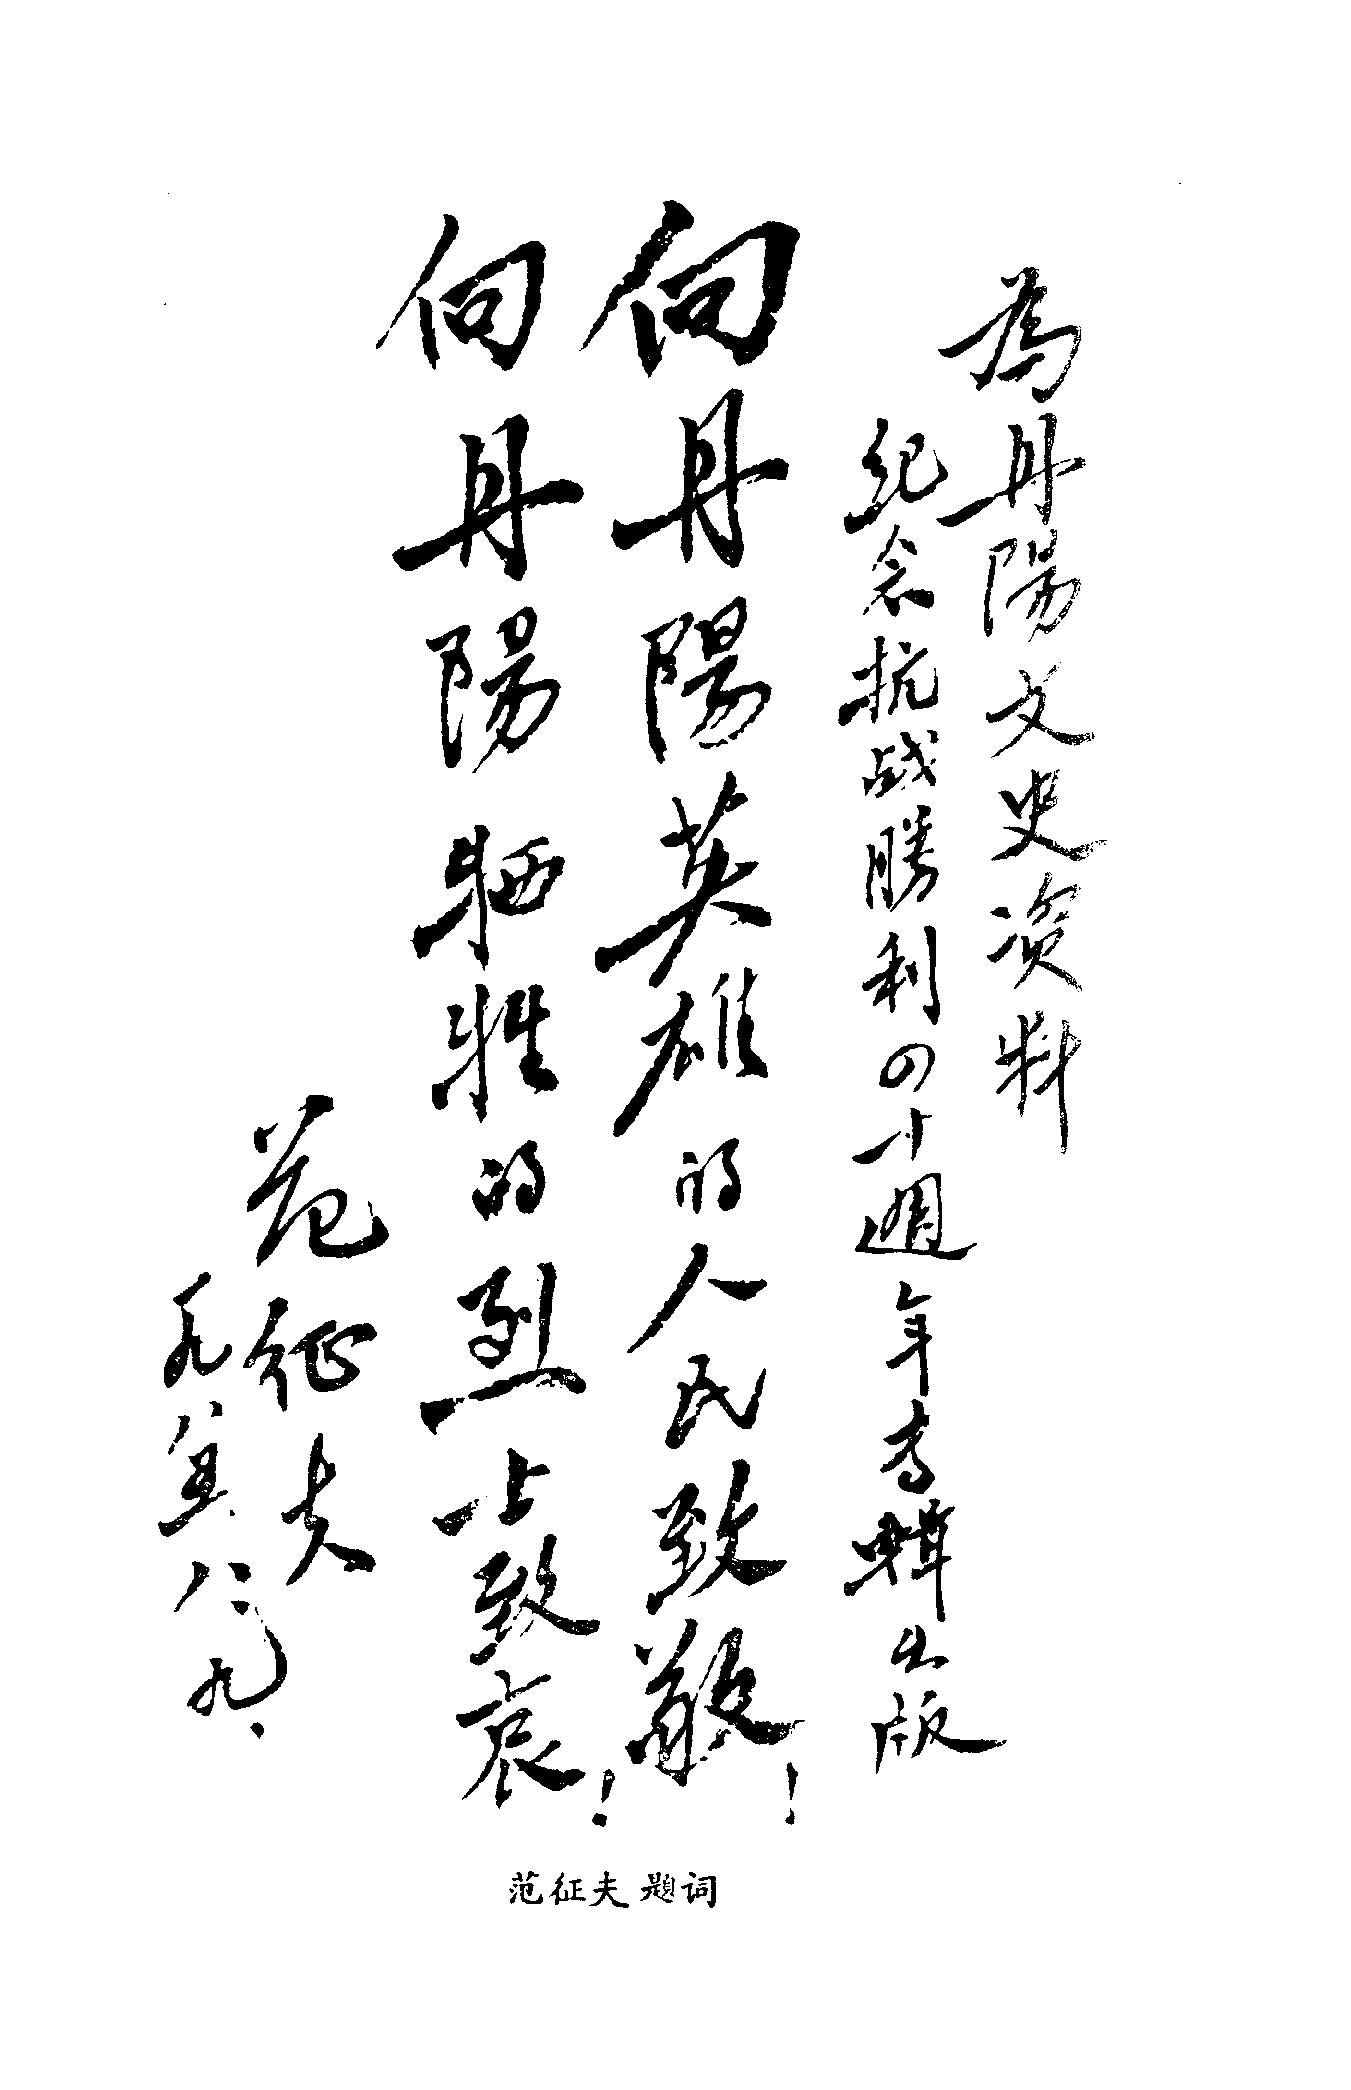 為丹陽文史资料
纪念抗战勝利四十週年专辑出版
向丹陽英雄的人民致敬！
向丹陽牺牲的烈士致哀！
范征夫
一九八五.八.九.
范征夫题词